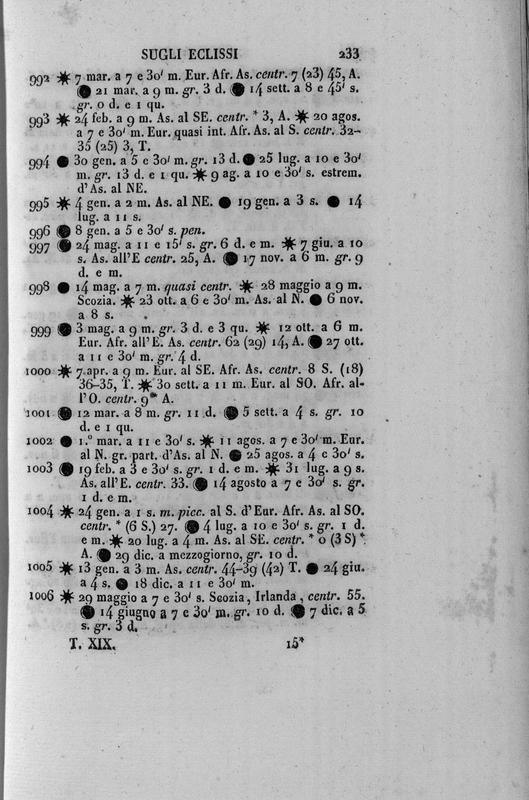 SUGLI ECLISSI 233
992 ☀ 7 mar. a 7 e 30' m. Eur. Afr. As. centr. 7 (23) 45, A.
● 21 mar. a 9 m. gr. 3 d. ● 14 sett. a 8 e 45' s.
gr. 0 d. e 1 qu.
993 ☀ 24 feb. a 9 m. As. al SE. centr. * 3, A. ☀ 20 agos.
a 7 e 30' m. Eur. quasi int. Afr. As. al S. centr. 32-
35 (25) 3, T.
994 ● 30 gen. a 5 e 30' m. gr. 13 d. ● 25 lug. a 10 e 30'
m. gr. 13 d. e 1 qu. ☀ 9 ag. a 10 e 30' s. estrem.
d'As. al NE.
995 ☀ 4 gen. a 2 m. As. al NE. ● 19 gen. a 3 s. ● 14
lug. a 11 s.
996 ● 8 gen. a 5 e 30' s. pen.
997 ● 24 mag. a 11 e 15' s. gr. 6 d. e m. ☀ 7 giu. a 10
s. As. all'E centr. 25, A. ● 17 nov. a 6 m. gr. 9
d. e m.
998 ● 14 mag. a 7 m. quasi centr. ☀ 28 maggio a 9 m.
Scozia. ☀ 23 ott. a 6 e 30' m. As. al N. ● 6 nov.
a 8 s.
999 ● 3 mag. a 9 m. gr. 3 d. e 3 qu. ☀ 12 ott. a 6 m.
Eur. Afr. all'E. As. centr. 62 (29) 14, A. ● 27 ott.
a 11 e 30' m. gr. 4 d.
1000 ☀ 7 apr. a 9 m. Eur. al SE. Afr. As. centr. 8 S. (18)
36-35, T. ☀ 30 sett. a 11 m. Eur. al SO. Afr. al-
l'O. centr. 9* A.
1001 ● 12 mar. a 8 m. gr. 11 d. ● 5 sett. a 4 s. gr. 10
d. e 1 qu.
1002 ● 1.° mar. a 11 e 30' s. ☀ 11 agos. a 7 e 30' m. Eur.
al N. gr. part. d'As. al N. ● 25 agos. a 4 e 30' s.
1003 ● 19 feb. a 3 e 30' s. gr. 1 d. e m. ☀ 31 lug. a 9 s.
As. all'E. centr. 33. ● 14 agosto a 7 e 30' s. gr.
1 d. e m.
1004 ☀ 24 gen. a 1 s. m. picc. al S. d'Eur. Afr. As. al SO.
centr. * (6 S.) 27. ● 4 lug. a 10 e 30' s. gr. 1 d.
e m. ☀ 20 lug. a 4 m. As. al SE. centr. * 0 (3 S) *
A. ● 29 dic. a mezzogiorno, gr. 10 d.
1005 ☀ 13 gen. a 3 m. As. centr. 44-39 (42) T. ● 24 giu.
a 4 s. ● 18 dic. a 11 e 30' m.
1006 ☀ 29 maggio a 7 e 30' s. Scozia, Irlanda, centr. 55.
● 14 giugno a 7 e 30' m. gr. 10 d. ● 7 dic. a 5
s. gr. 3 d.
T. XIX. 15*